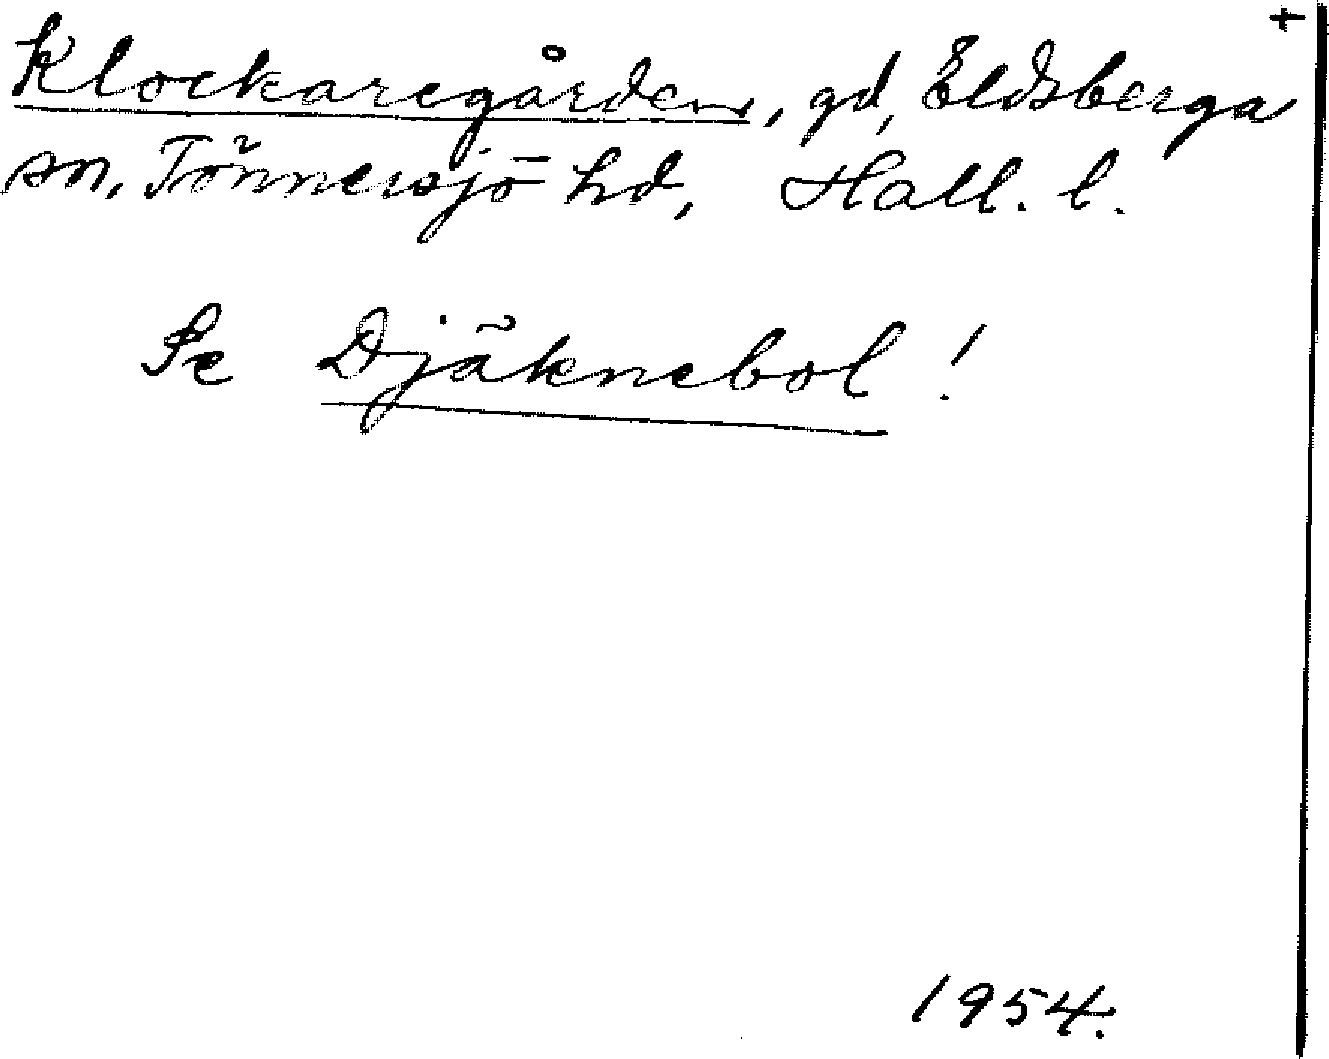 +
Klockaregården, gd, Eldsberga
sn, Tönnersjö hd, Hall. l.
Se Djäknebol!
1954.